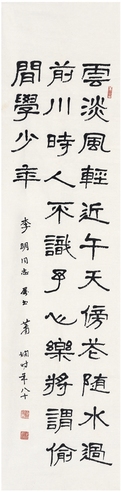 雲淡風輕近午天傍花隨水過
前川時人不識予心樂將謂偷
閒學少年
李明同志屬書 蕭嫻時年八十